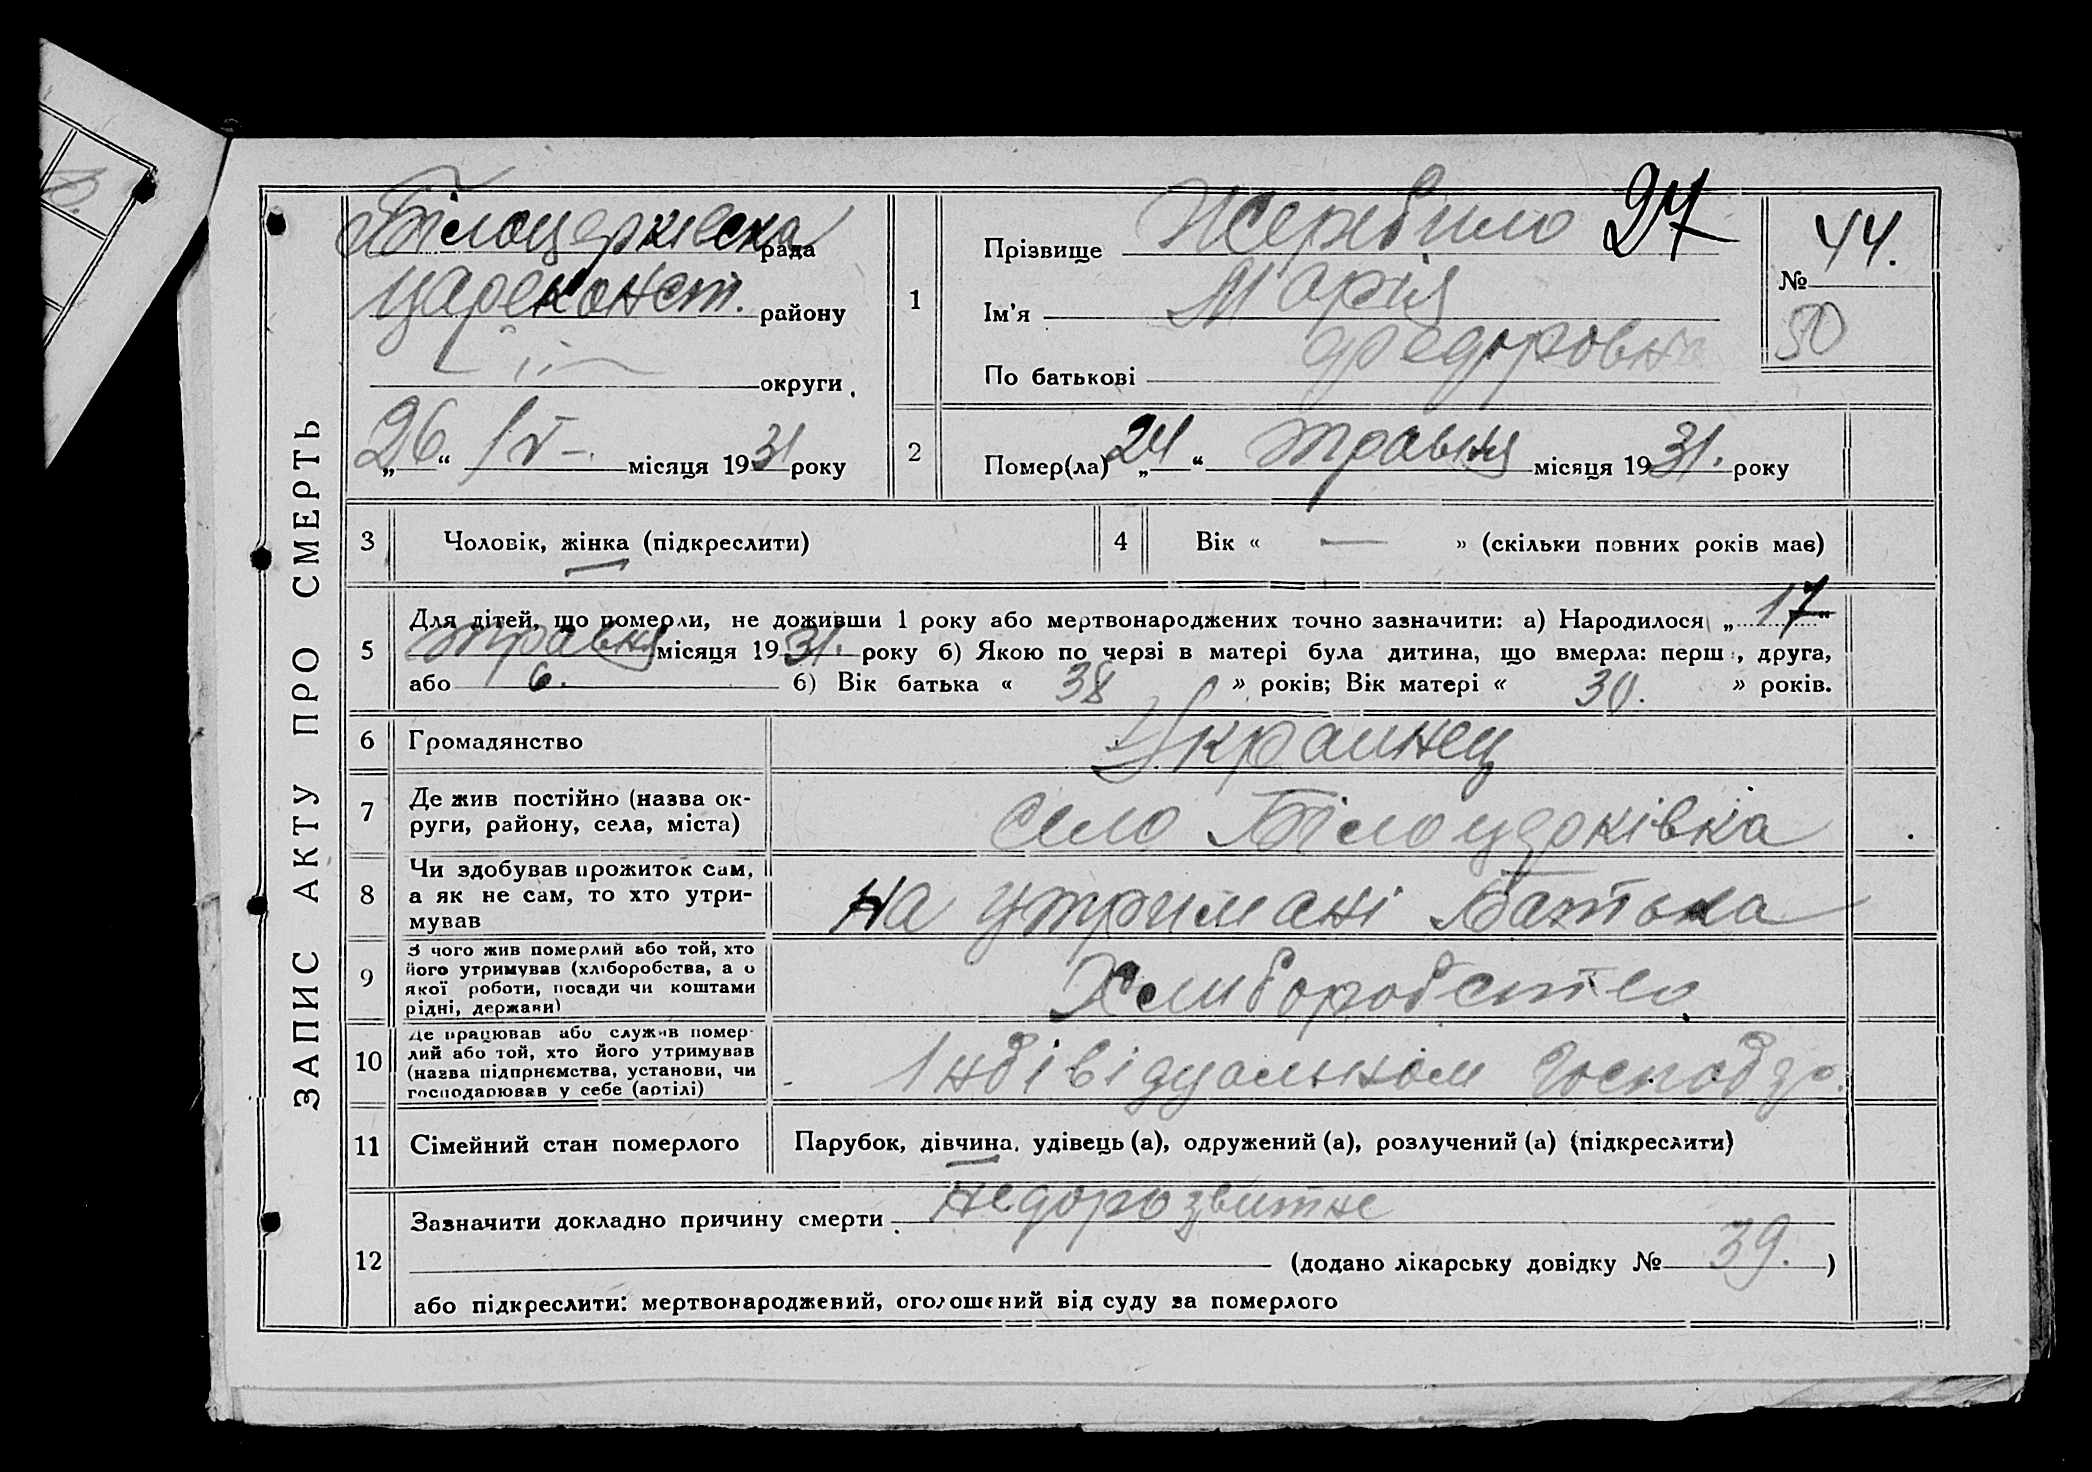 ЗАПИС АКТУ ПРО СМЕРТЬ
Білоцерківска рада
Цареконст. району
округи
„26“ IV місяця 1931 року
1
Прізвище Жеребило 27
Ім'я Марія
По батькові Федоровна
№ 44.
50
2
Помер(ла) „24“ травня місяця 1931. року
3 Чоловік, жінка (підкреслити)
4 Вік « — » (скільки повних років має)
5
Для дітей, що померли, не доживши 1 року або мертвонароджених точно зазначити: а) Народилося „17“
травня місяця 1931. року б) Якою по черзі в матері була дитина, що вмерла: перш, друга,
або 6. б) Вік батька « 38 » років; Вік матері « 30. » років.
6 Громадянство Украинец
7 Де жив постійно (назва ок-
руги, району, села, міста)
село Білоцерківка
8 Чи здобував прожиток сам,
а як не сам, то хто утри-
мував
на утримані батька
9 З чого жив померлий або той, хто
його утримував (хліборобства, а о
якої роботи, посади чи коштами
рідні, держави)
Хлиборобство
10 Де працював або служив помер-
лий або той, хто його утримував
(назва підприємства, установи, чи
господарював у себе (артілі)
Індівідуальном господар.
11 Сімейний стан померлого Парубок, дівчина, удівець (а), одружений (а), розлучений (а) (підкреслити)
12
Зазначити докладно причину смерти недорозвитне
(додано лікарську довідку № 39. )
або підкреслити: мертвонароджений, оголошений від суду за померлого